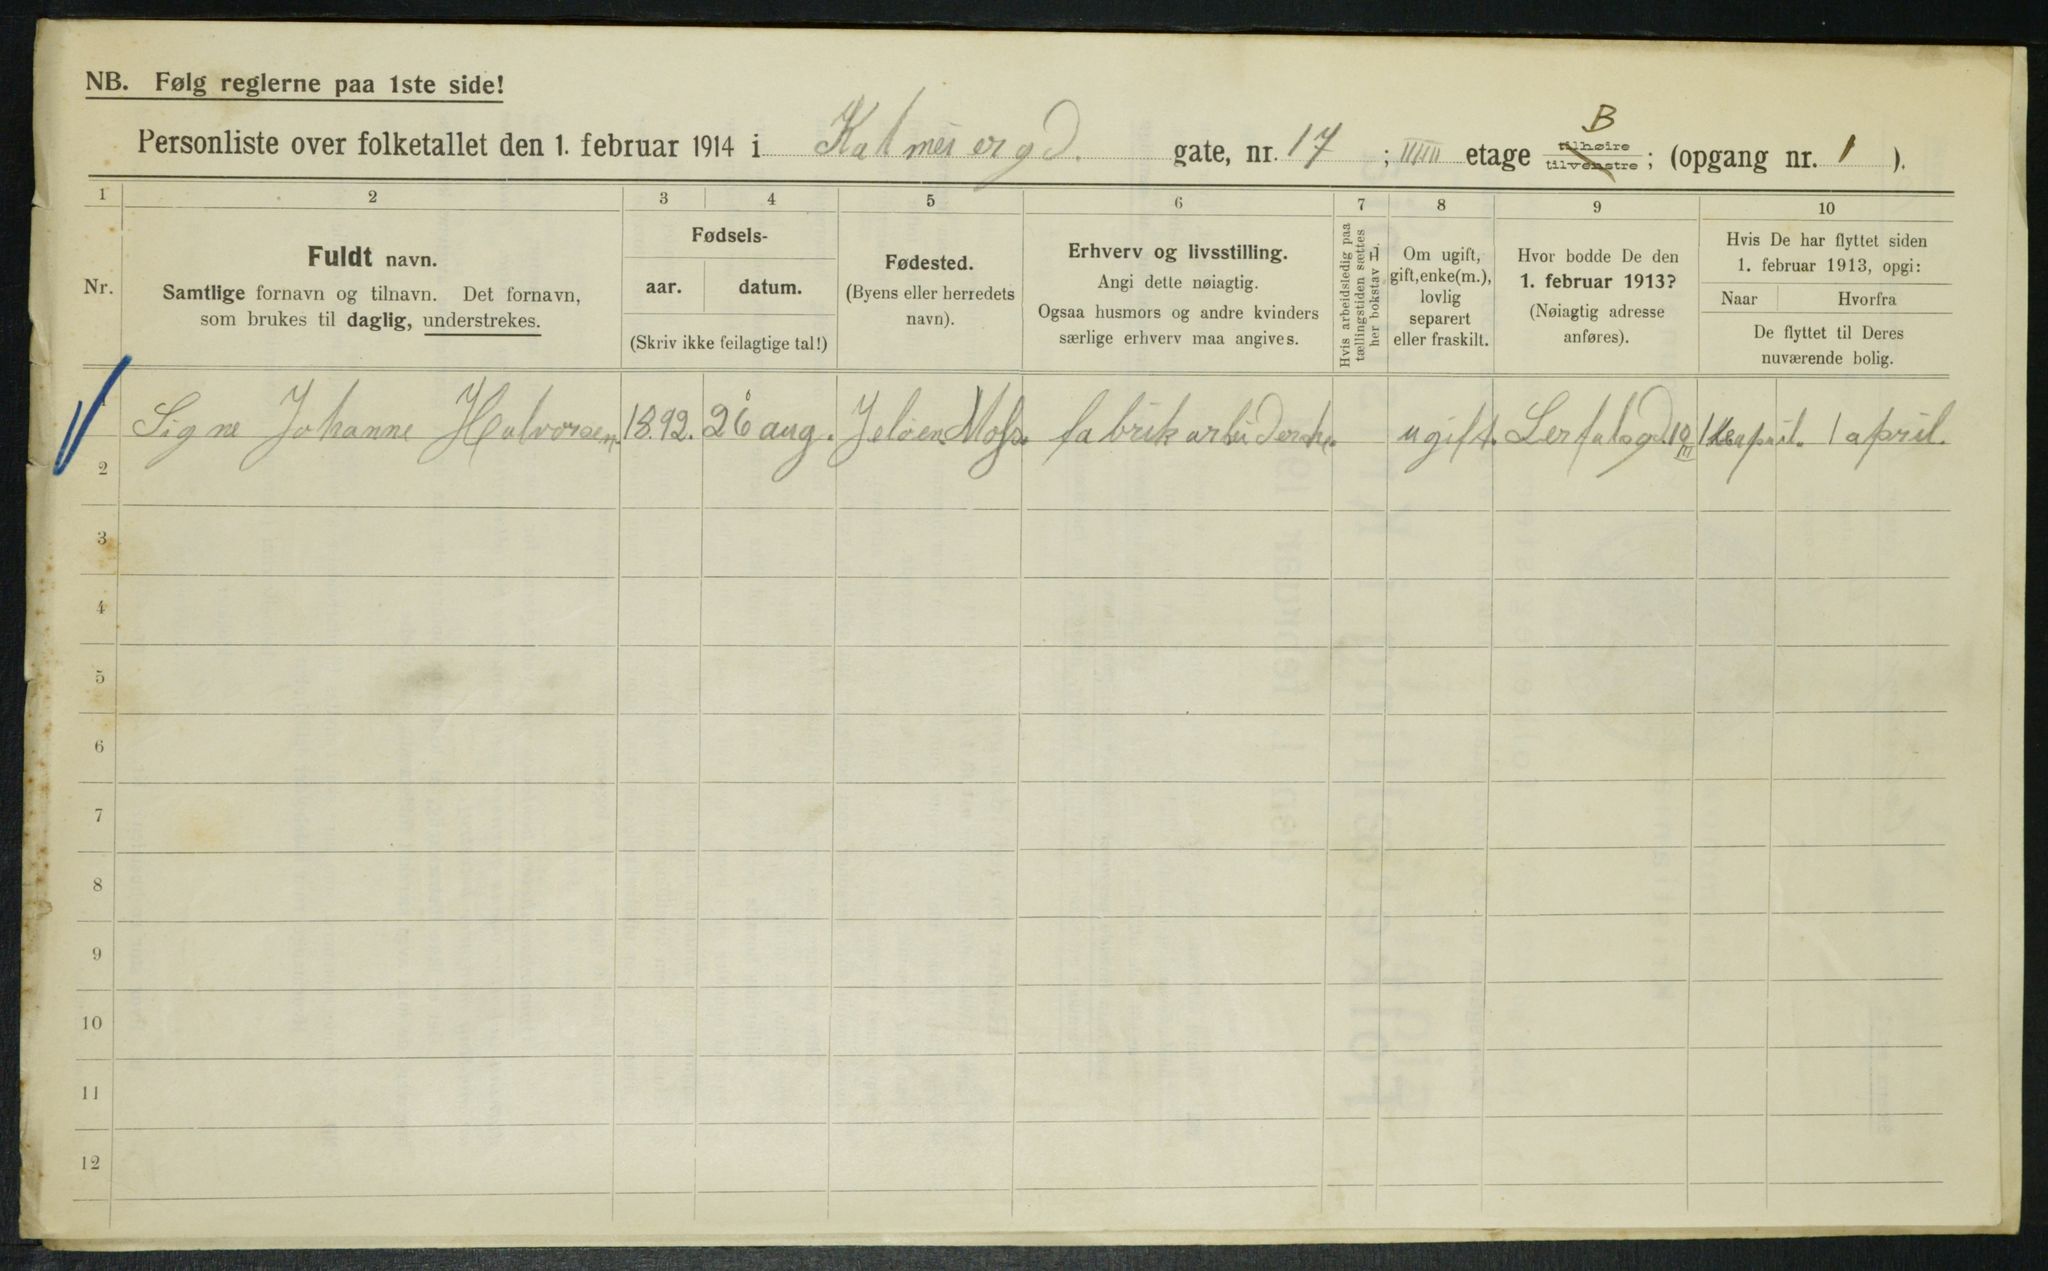 NB. Følg reglerne paa 1ste side!
Personliste over folketallet den 1. februar 1914 i Kalmeiergd. gate, nr. 17 ; etage tilhøire tilvenstre B ; (opgang nr. 1 ).
1 2 3 4 5 6 7 8 9 10
Nr.
Fuldt navn.
Samtlige fornavn og tilnavn. Det fornavn,
som brukes til daglig, understrekes.
Fødsels-
aar. datum.
(Skriv ikke feilagtige tal!)
Fødested.
(Byens eller herredets
navn).
Erhverv og livsstilling.
Angi dette nøiagtig.
Ogsaa husmors og andre kvinders
særlige erhverv maa angives.
Hvis arbeidsledig paa
tællingstiden sættes
her bokstav L.
Om ugift,
gift, enke(m.),
lovlig
separert
eller fraskilt.
Hvor bodde De den
1. februar 1913?
(Nøiagtig adresse
anføres).
Hvis De har flyttet siden
1. februar 1913, opgi:
Naar Hvorfra
De flyttet til Deres
nuværende bolig.
1 Signe Johanne Halvorsen. 1892. 26 aug. Jeløen Moss. fabrikarbeiderske. ugift. Lerfalsgd. 10 III april. 1 april.
2
3
4
5
6
7
8
9
10
11
12